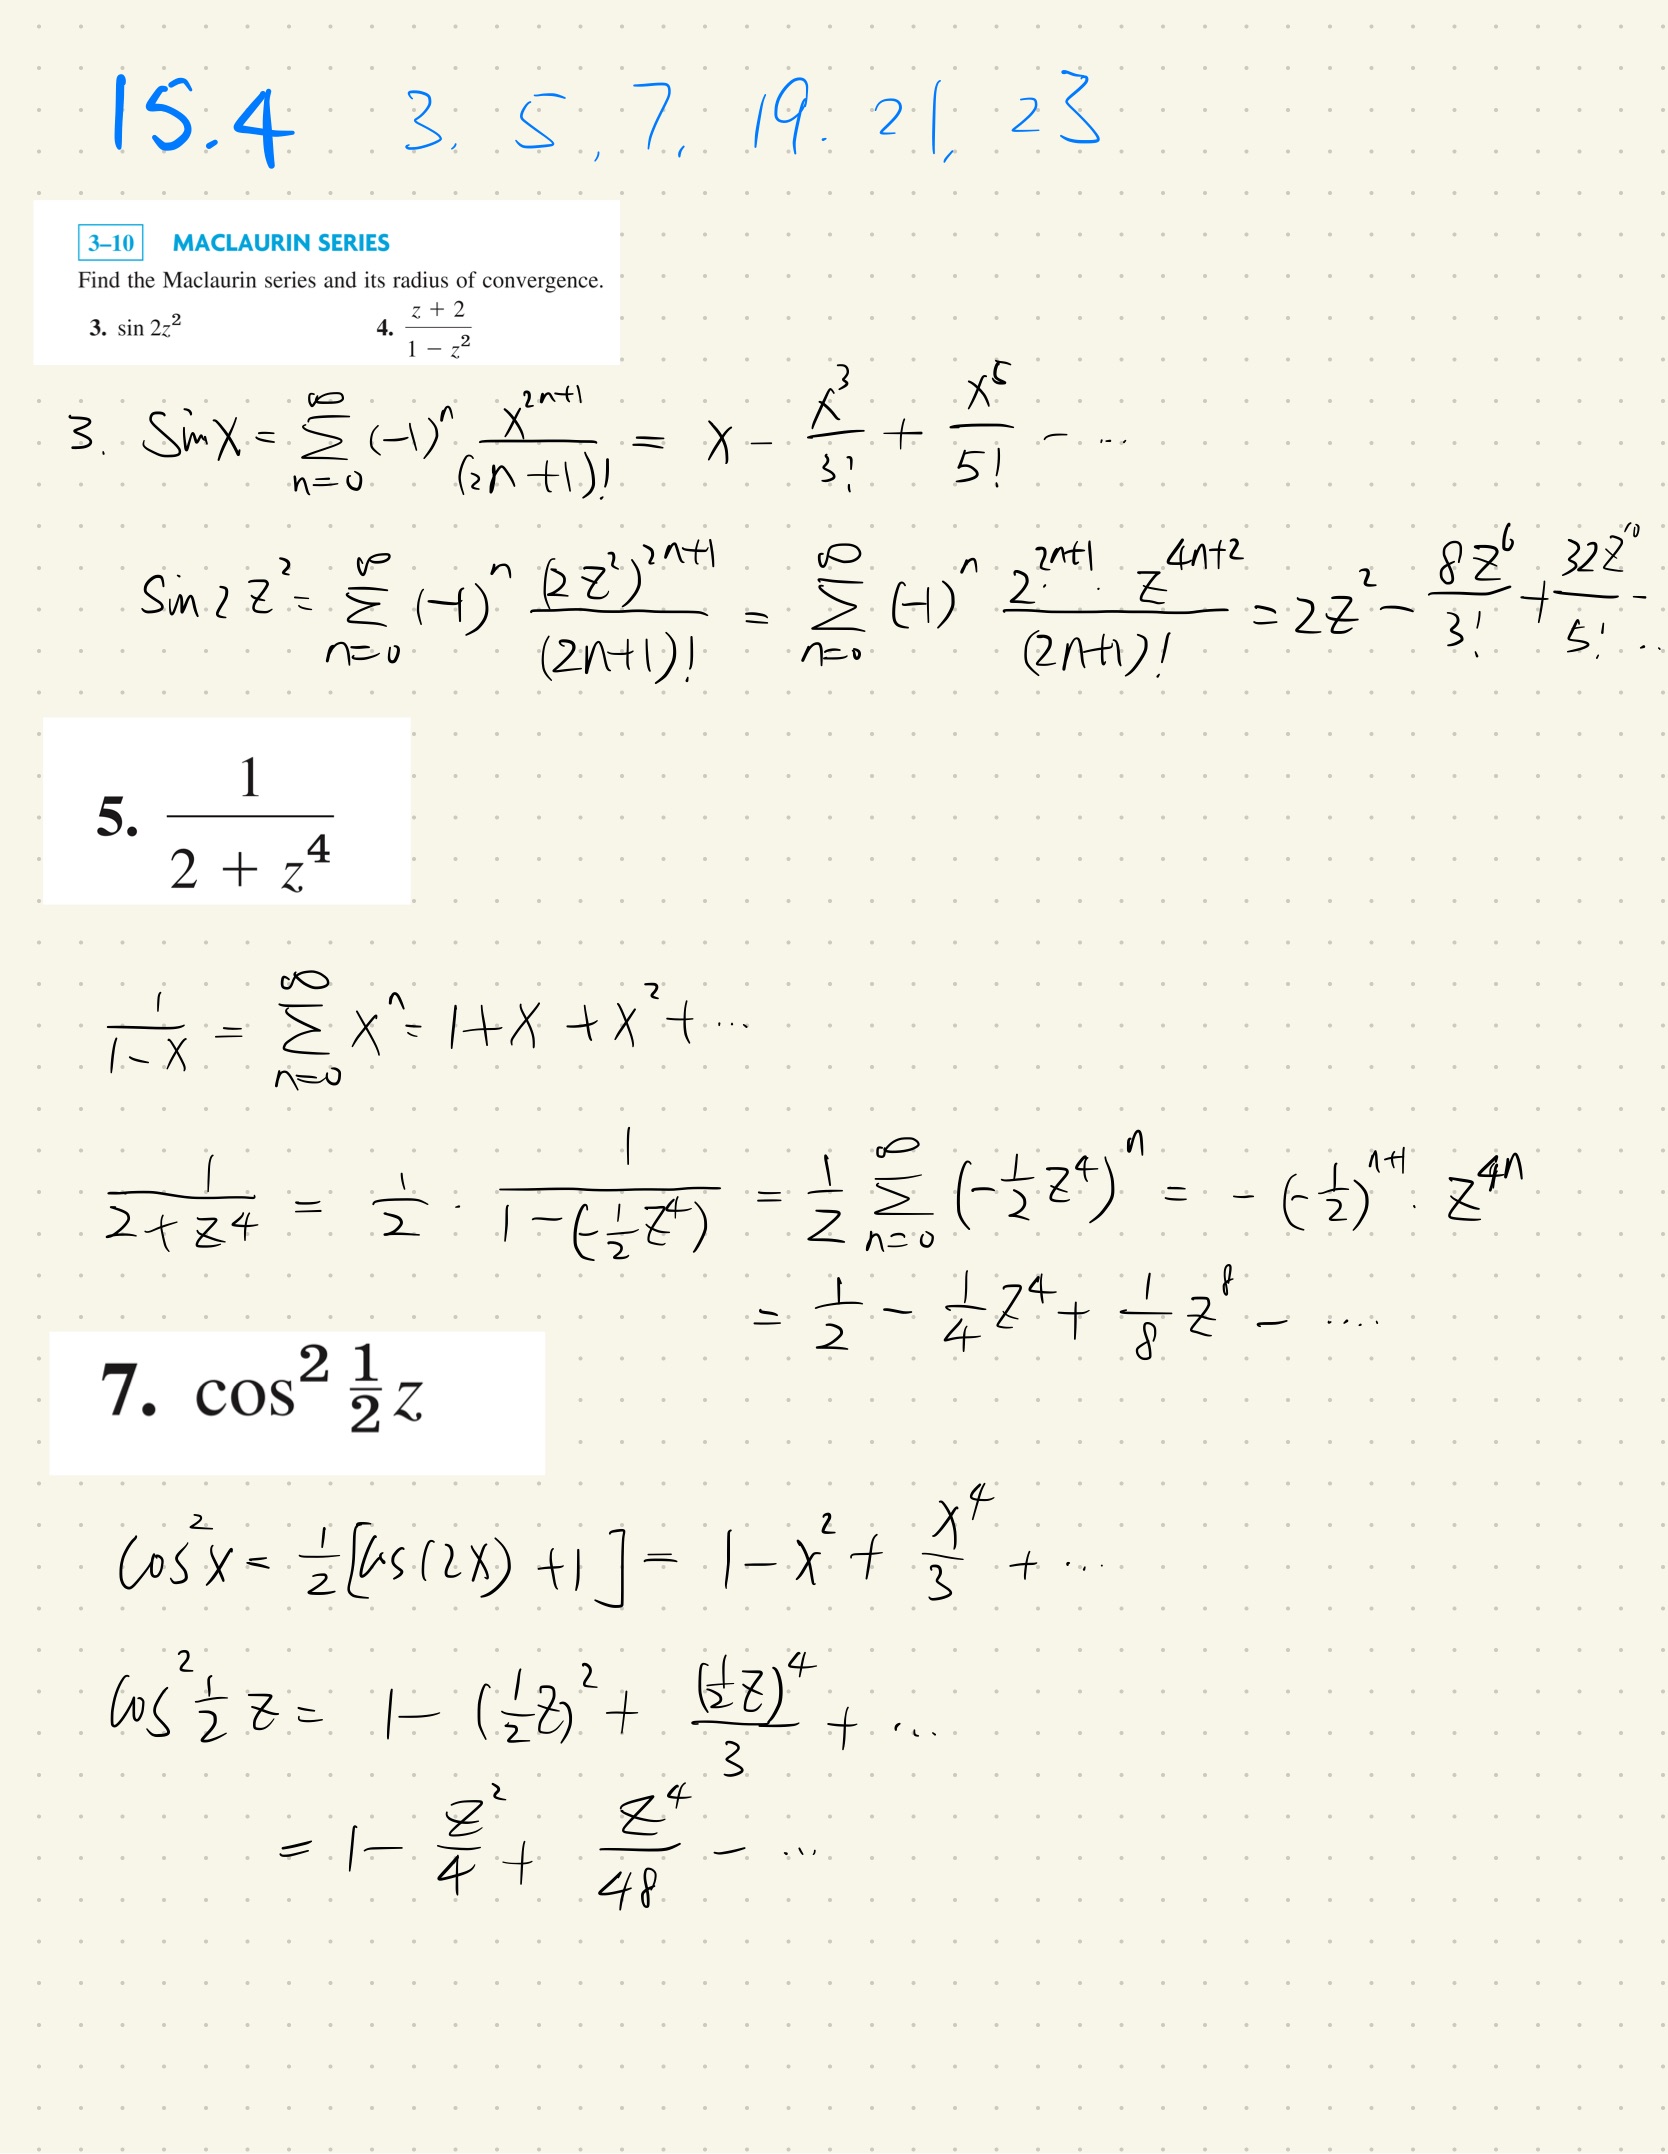 15.4 3. 5, 7, 19. 21, 23
3–10 MACLAURIN SERIES
Find the Maclaurin series and its radius of convergence.
3. sin 2z² 4. (z + 2)/(1 − z²)
3. Sin x = ∑_{n=0}^{∞} (-1)^n x^{2n+1}/(2n+1)! = x - x³/3! + x⁵/5! - ...
Sin 2 z² = ∑_{n=0}^{∞} (-1)^n (2z²)^{2n+1}/(2n+1)! = ∑_{n=0}^{∞} (-1)^n 2^{2n+1} · z^{4n+2}/(2n+1)! = 2z² - 8z⁶/3! + 32z¹⁰/5! - ...
5. 1/(2 + z⁴)
1/(1-x) = ∑_{n=0}^{∞} x^n = 1+x+x²+ ...
1/(2+z⁴) = 1/2 · 1/(1-(-1/2 z⁴)) = 1/2 ∑_{n=0}^{∞} (-1/2 z⁴)^n = - (-1/2)^{n+1} · z^{4n}
= 1/2 - 1/4 z⁴ + 1/8 z⁸ - ....
7. cos² ½ z
Cos² x = 1/2 [cos(2x) +1] = 1 - x² + x⁴/3 + ...
Cos² 1/2 z = 1 - (1/2 z)² + (1/2 z)⁴/3 + ...
= 1 - z²/4 + z⁴/48 - ...